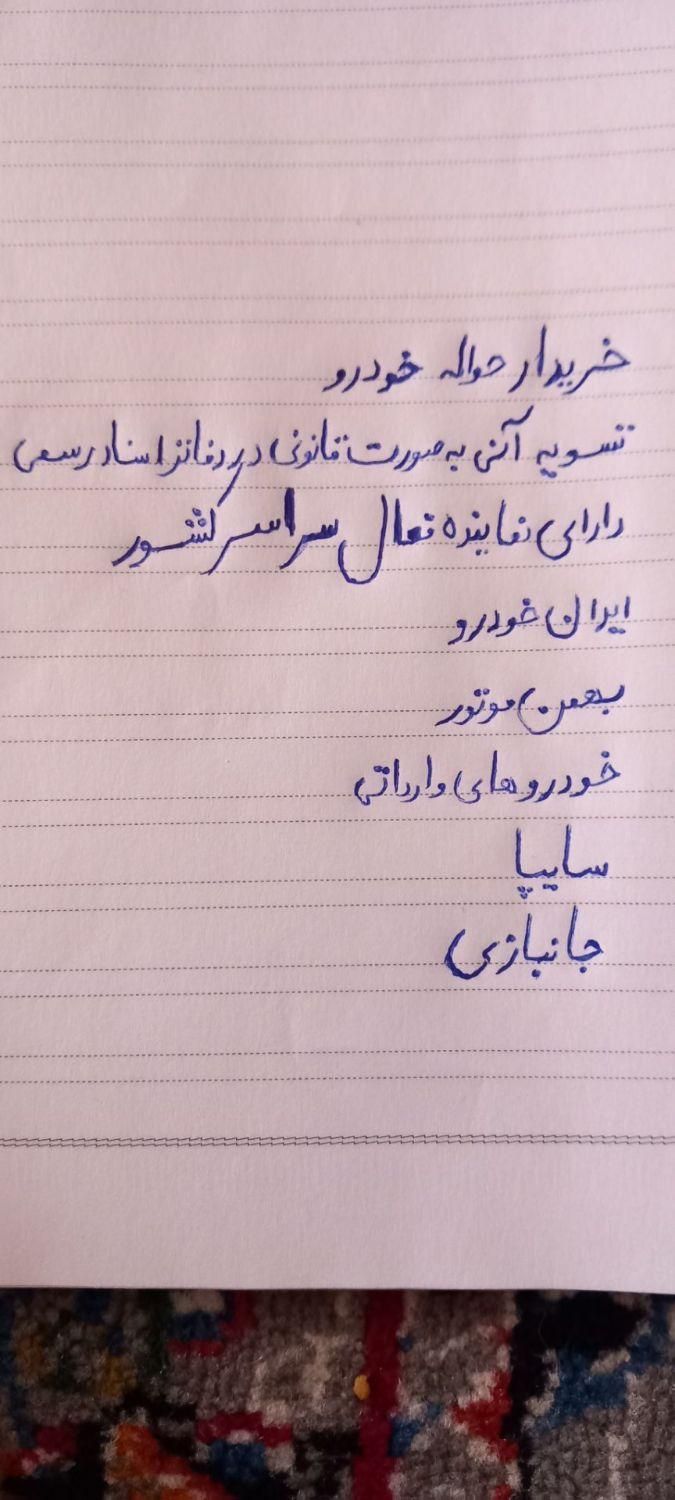 خریدار حواله خودرو
تسویه آنی به صورت قانونی در دفاتر اسناد رسمی
دارای نماینده فعال سراسر کشور
ایران خودرو
بهمن موتور
خودروهای وارداتی
سایپا
جانبازی